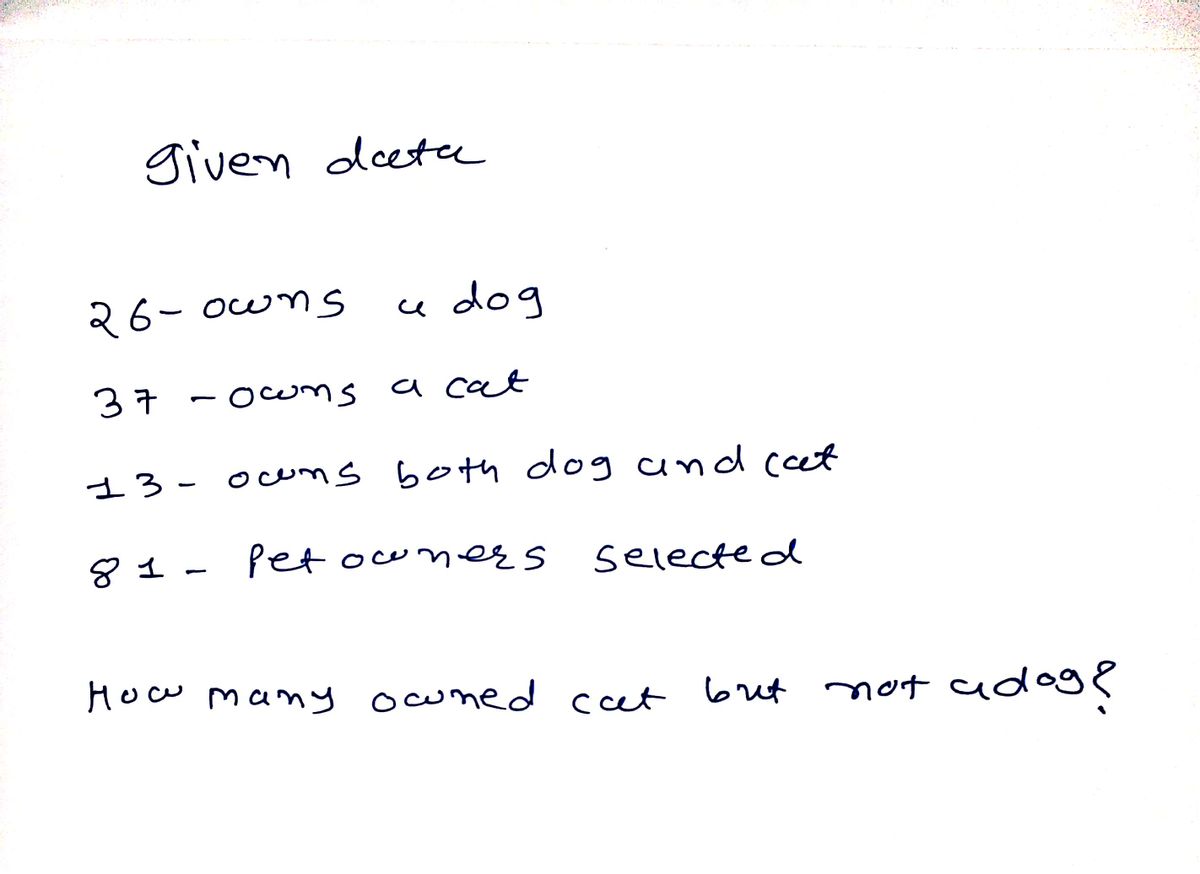 given data
26- owns a dog
37 - owns a cat
13 - owns both dog and cat
81 - Pet owners selected
How many owned cat but not a dog?